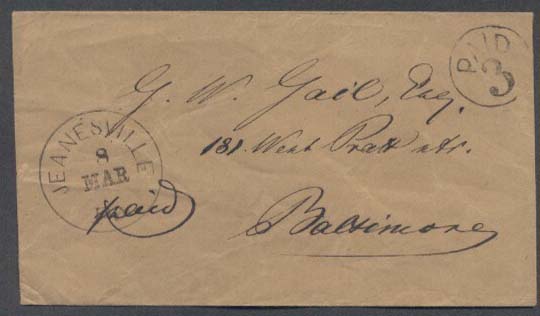 PAID
3
G. W. Gail, Esq.
181. West Pratt str.
Baltimore
JEANESVILLE
8
MAR
paid